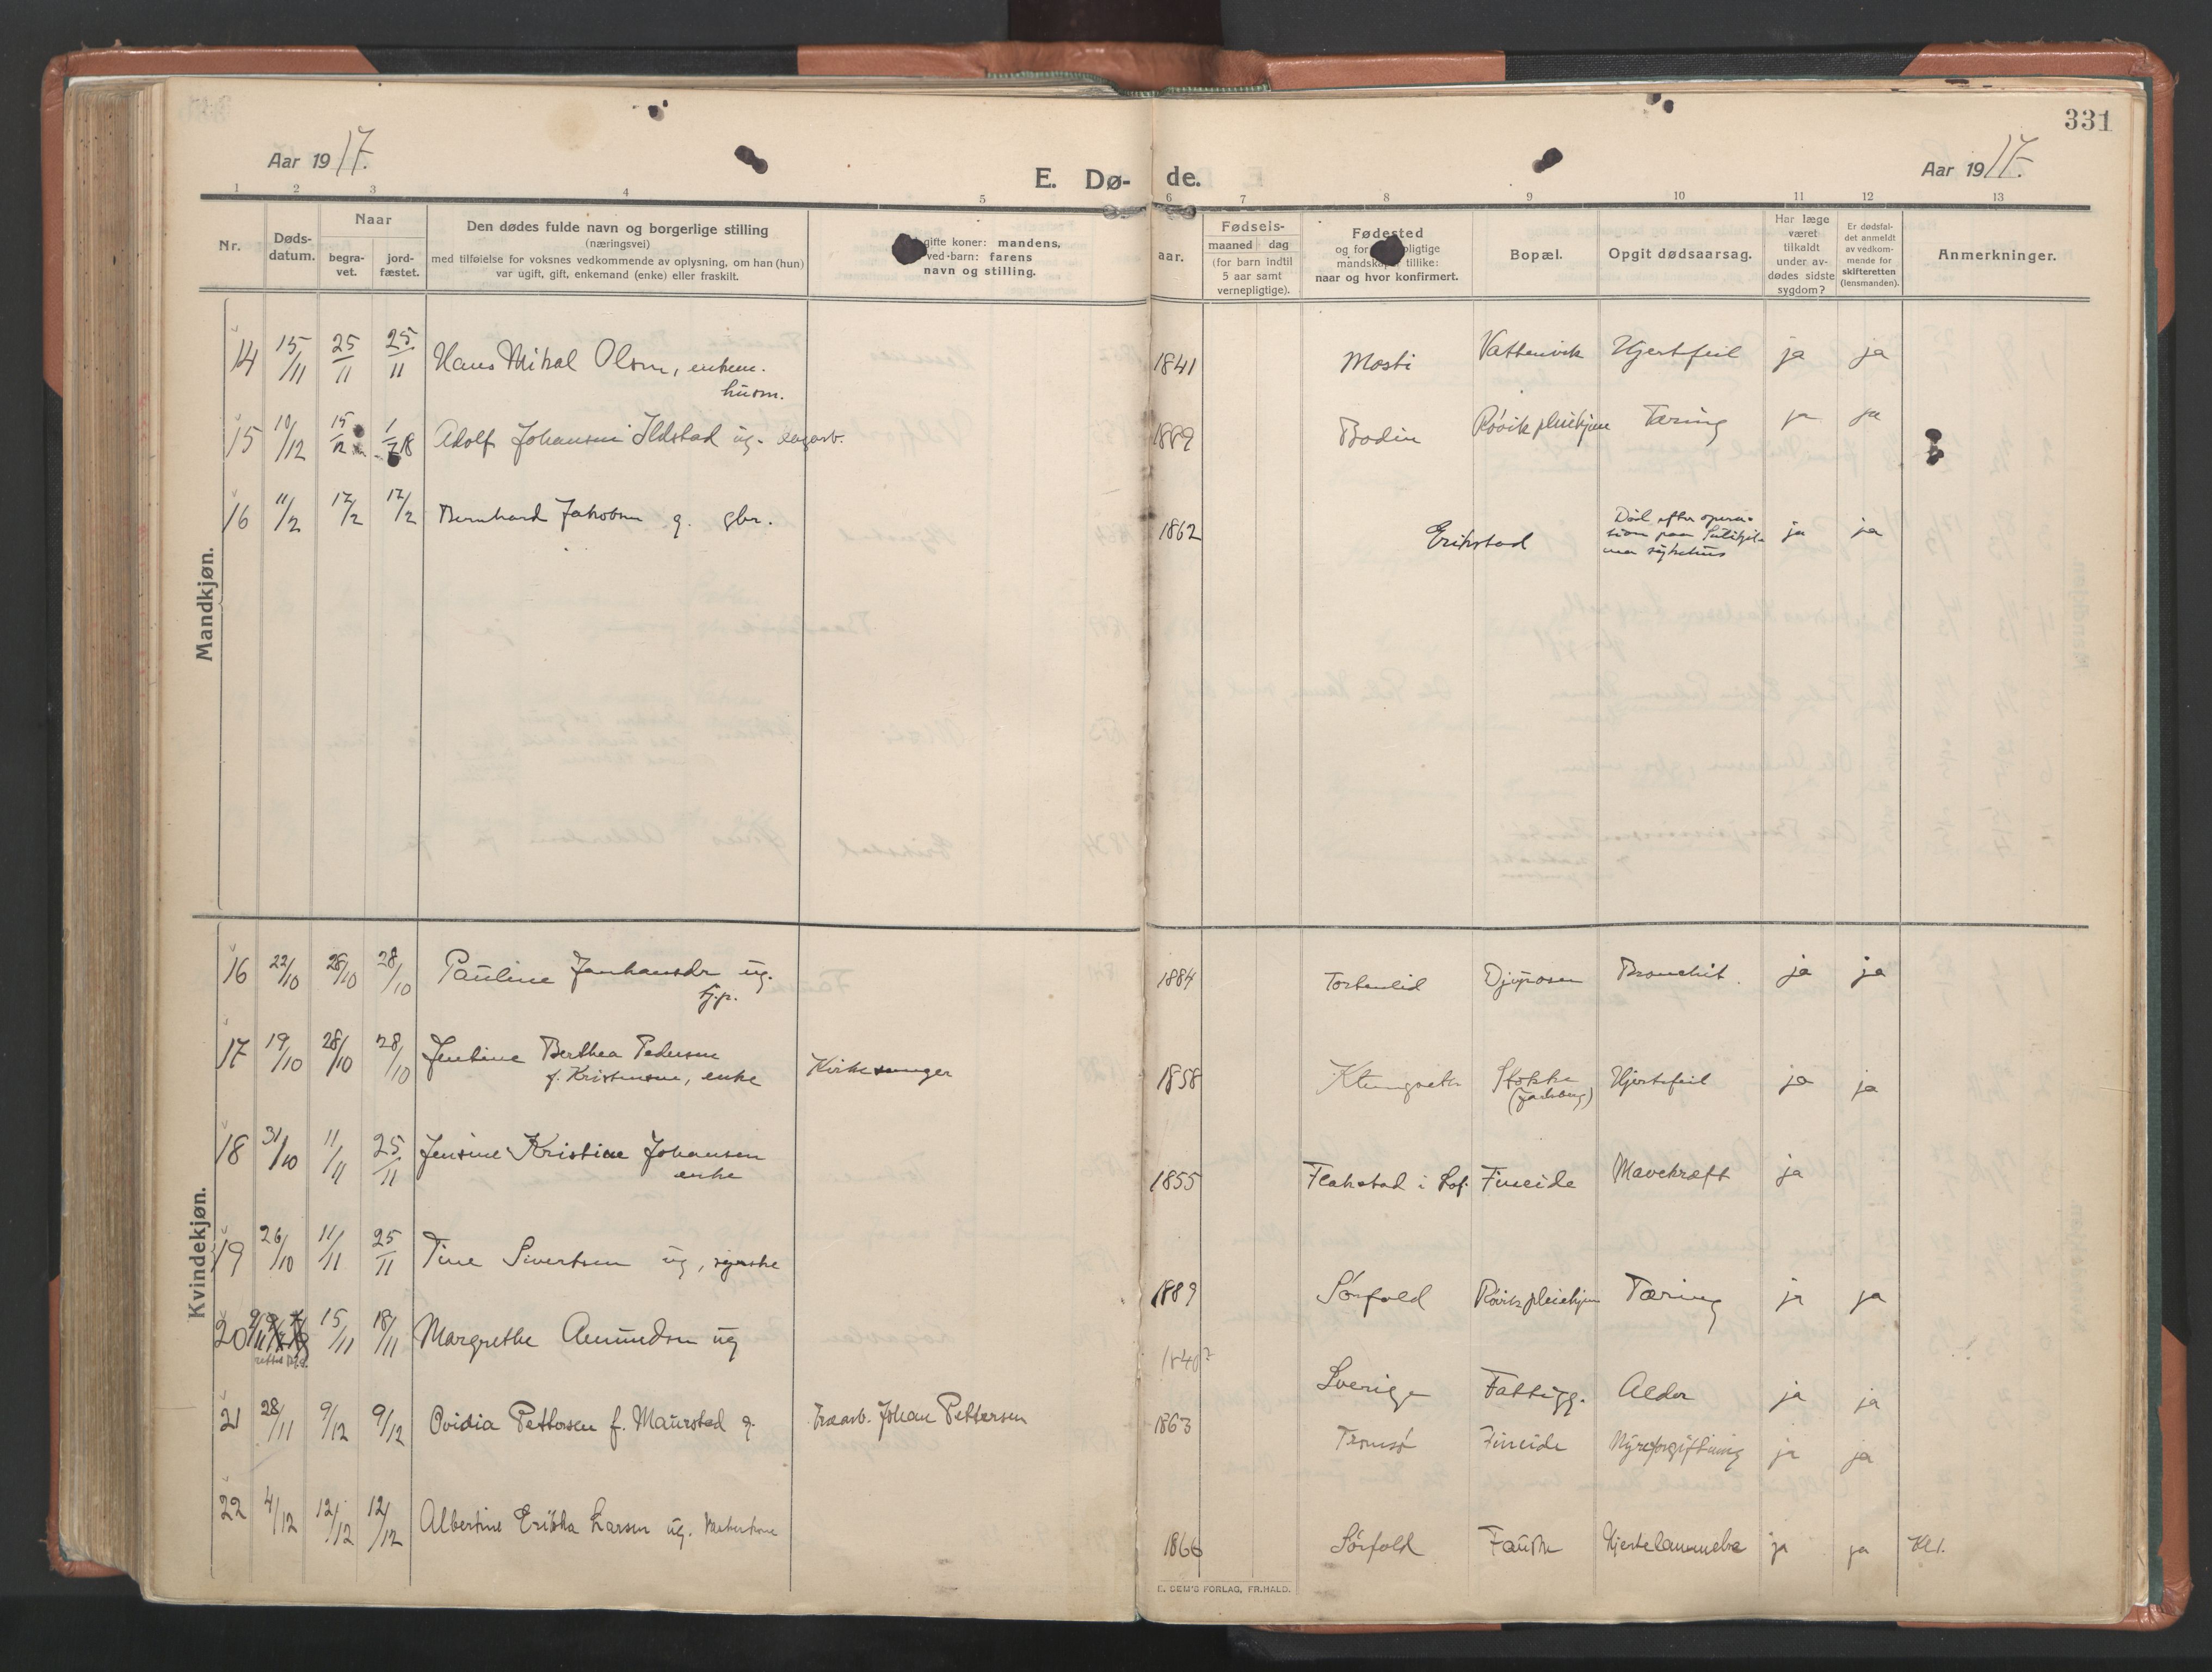 331
Aar 1917.
E. Dø-
de.
Aar 1917.
1 2 3 4 5 6 7 8 9 10 11 12 13
Nr.
Døds-
datum.
Naar
begra-
vet.
jord-
fæstet.
Den dødes fulde navn og borgerlige stilling
(næringsvei)
med tilføielse for voksnes vedkommende av oplysning, om han (hun)
var ugift, gift, enkemand (enke) eller fraskilt.
gifte koner: mandens,
ved barn: farens
navn og stilling.
aar.
Fødsels-
maaned dag
(for barn indtil
5 aar samt
vernepligtige).
Fødested
og for pligtige
mandskaper tillike:
naar og hvor konfirmert.
Bopæl.
Opgit dødsaarsag.
Har læge
været
tilkaldt
under av-
dødes sidste
sygdom?
Er dødsfal-
det anmeldt
av vedkom-
mende for
skifteretten
(lensmanden).
Anmerkninger.
Mandkjøn.
14 15/11 25/11 25/11 Hans Mikal Olsen, enkem. 1841 Mosti Vattenvik Hjertfeil ja ja
husm.
15 10/12 15/12 1/2 18 Adolf Johansen Ildstad ug. 1889 Bodin Røvik pleiehjem Tæring ja ja
16 11/2 17/2 17/2 Bernhard Jakobsen g. gbr. 1862 Erikstad Død efter opera-
sion paa Sulitjel-
ma sykehus ja ja
Kvindekjøn.
16 22/10 28/10 28/10 Pauline ug. 1884 Djupaasen Bronchit. ja ja
tj.p.
17 19/10 28/10 28/10 Jentine Berthea Pedersen Kirkesanger 1858 Klungset Stokke Hjertefeil ja ja
f. Kristensen, enke
18 31/10 11/11 25/11 Jensine Kristine Johansen 1855 Flakstad i Lof. Fineide Mavekræft ja
enke
19 26/10 11/11 25/11 Tine Sivertsen ug, syerske 1889 Sørfold Røvik pleiehjem Tæring ja ja
20 9/11 15/11 18/11 Margrethe Amundsen ug 1840? Sverige Fattigg. Alder ja ja
rettet
21 28/11 9/12 9/12 Ovidia Pettersen f. Maurstad g. Johan Pettersen 1863 Tromsø Fineide Nyreforgiftning ja ja
22 4/12 12/12 12/12 Albertine Erikka Larsen ug. Vaskerkone 1866 Sørfold Fauske Hjertelammelse ja ja Kl.
E. SEM'S FORLAG, FR.HALD.